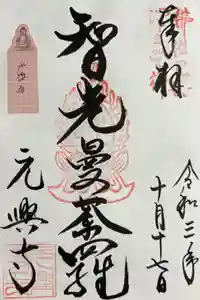 奉拝
令和三年
十月十七日
智光曼荼羅
元興寺